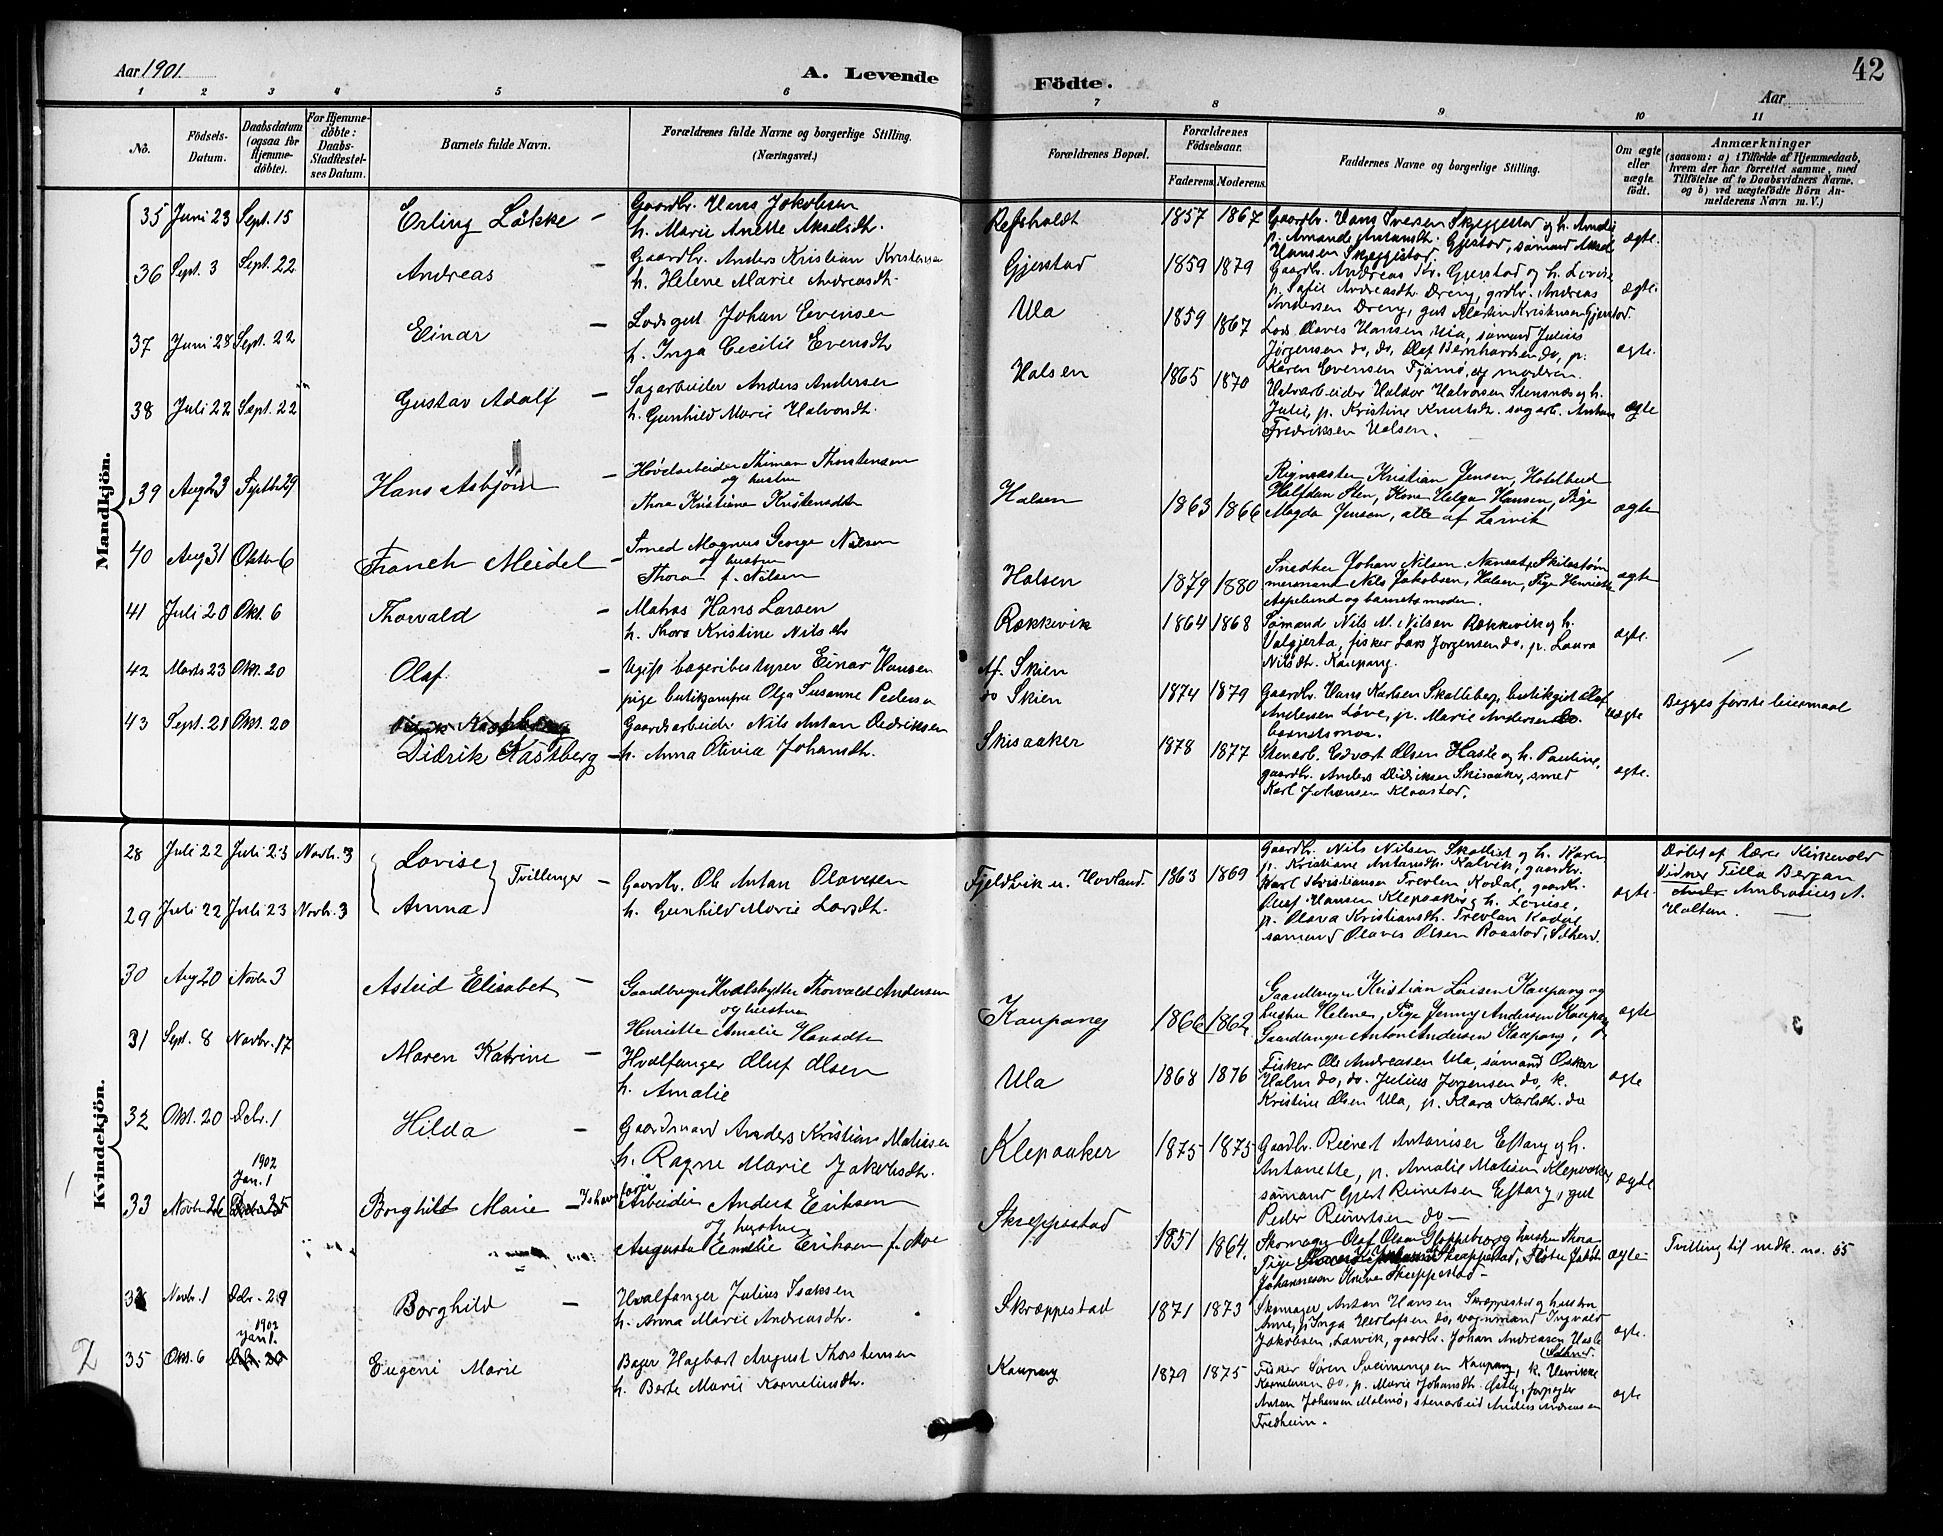 Aar 1901.
A. Levende
Födte.
42
Aar
1 2 3 4 5 6 7 8 9 10 11
No.
Födsels-
Datum.
Daabsdatum
(ogsaa for
Hjemme-
döbte).
For Hjemme-
döbte:
Daabs-
Stadfæstel-
ses Datum.
Barnets fulde Navn.
Forældrenes fulde Navne og borgerlige Stilling.
(Næringsvei.)
Forældrenes Bopæl.
Forældrenes
Födselsaar.
Faderens. Moderens.
Faddernes Navne og borgerlige Stilling.
Om ægte
eller
uægte
födt.
Anmærkninger
(saasom: a) i Tilfælde af Hjemmedaab,
hvem der har forrettet samme, med
Tilföielse af to Daabsvidners Navne,
og b) ved uægtefödte Börn An-
melderens Navn m. V.)
Mandkjön.
35 Juni 23 Sept. 15 Erling Løkke –
Gaardbr. Hans Jakobsen
h. Marie Anette Akselsdtr.
Refsholdt 1857 1867
Gaardbr. Hans Iversen Skjeggestad og h. Amalie
p. Amanda Antonsdtr. Gjestad, sømand Aksel
Hansen Skjeggestad.
ægte.
36 Sept. 3 Sept. 22 Andreas –
Gaardbr. Anders Kristian Kristensen
h. Helene Marie Andreasdtr.
Gjerstad 1859 1879
Gaardbr. Andreas Kr. Gjerstad og h. Lovise
p. Sofie Andreasdtr. Dreng, grdbr. Andreas
Andersen Dreng, gut Martin Kristensen Gjerstad.
ægte.
37 Juni 28 Sept. 22 Einar –
Lodsgut Johan Evensen
h. Inga Cecilie Evensdtr
Ula 1859 1867
Lods Olaves Hansen, Ula, sømand Julius
Jørgensen do, do, Olaf Bernhardsen do, p.
Karen Evensen Tjømø, og modren.
ægte.
38 Juli 22 Sept. 22 Gustav Adolf –
Sagarbeider Anders Andersen
h. Gunhild Marie Halvorsdtr.
Halsen 1865 1870
Halvor Halvorsen Stensnes og h.
Julie, p. Kristine Knutsdtr. sagarb. Anton
Fredriksen Halsen.
ægte
39 Aug 23 Septbr 29 Hans Asbjørn –
Høvelarbeider Thorstensen
og hustru
Thora Kristiane Kristensdtr
Halsen 1863 1866
Kristian Jensen,
Halfdan Sten, Kone Helga Hansen, Pige
Magda Jensen, alle af Larvik
ægte
40 Aug 31 Oktbr 6 Franck Meidel –
Smed Magnus George Nilsen
og hustru
Thora f. Nilsen
Halsen 1879 1880
Snedker Johan Nilsen, Nanset, Skibstøm
mermand Nils Jakobsen, Halsen, Pige Henriette
Aspelund og barnets moder.
ægte
41 Juli 20 Okt. 6 Thorvald –
Matros Hans Larsen
h. Thora Kristine Nilsdtr
Rækkevik 1864 1868
Sømand Nils M. Nilsen Rækkevik og h.
Valgjerta, fisker Lars Jørgensen do, p. Laura
Nilsdtr. Kaupang.
ægte.
42 Marts 23 Okt. 20 Olaf –
Ugift bageribestyrer Einar Hansen
pige butikjomfru Olga Susanne Pedersen
Af. Skien
do Skien 1874 1879
Gaardbr. Hans Karlsen Skalleberg, butikgut Olaf
Andersen Løve, p. Marie Andersen do.
uægte
Begges første leiermaal
43 Sept. 21 Okt. 20
Didrik Kastberg –
Gaardsarbeider Nils Anton Didriksen
h. Anna Olivia Johansdtr.
Skisaaker 1878 1877
Stenarb. Edvart Olsen Haslé og h. Pauline,
gaardbr. Anders Didriksen Skisaaker, smed
Karl Johansen Klaastad.
ægte.
Kvindekjön.
28 Juli 22 Juli 23 Novbr. 3 Lovise
Tvillinger –
29 Juli 22 Juli 23 Novbr. 3 Anna
Gaardbr. Ole Anton Olavesen
h. Gunhild Marie Larsdtr.
Fjeldvik u. Hovland 1863 1869
Gaardbr. Nils Nilsen Skallist og h. Karen
p. Kristiane Antonsdtr. Kalvik, gaardbr.
Karl Kristiansen Trevlen Kodal, gaardbr.
Oluf Hansen Klepaaker og h. Lovise,
p. Olava Kristiansdtr. Trevlan Kodal,
sømand Olaves Olsen Raastad,
ægte.
Døbt af Lærer Kirkevold
Vidner Tilla Bergan
Ambrosius A.
Holtan.
30 Aug 20 Novbr 3 Astrid Elisabet –
Gaardbruger Hvalskytter Thorvald Andersen
og hustru
Henriette Amalie Hansdtr
Kaupang 1866 1862
Gaardbruger Kristian Larsen Kaupang og
hustru Helene, Pige Jenny Andersen Kaupang
Gaardbruger Anton Andersen Kaupang,
ægte
31 Sept. 8 Novbr. 17 Maren Katrine –
Hvalfanger Oluf Olsen
h. Amalie
Ula 1868 1876
Fisker Ole Andreasen Ula, sømand Oskar
Holm do, do. Julius Jørgensen do, k.
Kristine Olsen Ula, p. Klara Karlsdtr. do
ægte
32 Okt. 20 Debr. 1 Hilda –
Gaardmand Anders Kristian Matisen
h. Ragne Marie Jakobsdtr.
Klepaaker 1875 1875
Gaardbr. Reinert Antonisen Eftang og h.
Antonette, p. Amalie Matisen Klepaaker
sømand Gjert Reinertsen Eftang, gut
Peder Reinertsen do –
ægte
33 Novbr 26 1902 Jan. 1 Borghild Marie –
Arbeider Anders Eriksen
og hustru
Augusta Emilie Eriksen f. Moe
Skræppestad 1851 1864.
Skomager Olaf Olsen Gloppe og hustru Thora
Pige
Skræppestad –
ægte –
Tvilling til mdk. no. 55
34 Novbr. 1 Debr. 29 Borghild –
Hvalfanger Julius Isaksen
h. Anna Marie Andreasdtr.
Skræppestad 1871 1873
Skomager, Anton Hansen Skræppestad og hustru
Anne, p. Inga Herlofsen do, vognmand Ingvald
Jakobsen, Larvik, gaardbr. Johan Andreasen Hasle
ægte.
35 Okt. 6 1902 Jan 1. Eugeni Marie
Bager Hagbart August Thorstensen
h. Berte Marie Korneliusdtr.
Kaupang 1879 1875
Fisker Søren Svenningsen Kaupang, k. Henrikke
Kornelisen do, p. Marie Johansdtr. Østby, forpagter
Anton Johansen Malmø, stenarbeid Anders Andreasen
Fredheim.
ægte
2